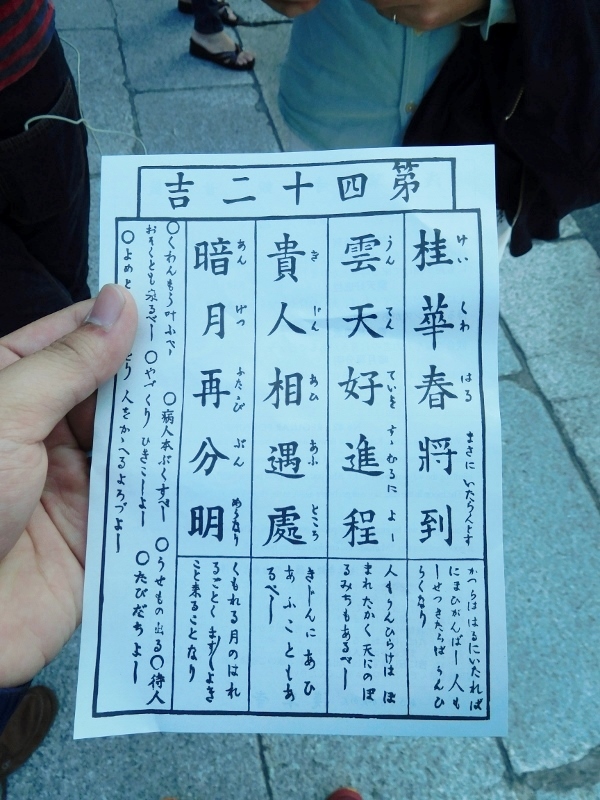 第四十二吉
桂華春將到
けい くわ はる まさに いたらんとす
かつらははるにいたれば
人も
せつきたらば うんひ
らくなり
雲天好進程
うん てん ていを すゝむるに よし
人もうんひらけば ほ
まれたかく天にのぼ
るみちもあるべし
貴人相遇處
き じん あひ あふ ところ
きじんにあひ
あふこともあ
るべし
暗月再分明
あん げつ ふたゝび ぶん めいなり
くもれる月のはれ
るごとくます〳〵よき
こと来ることなり
〇くわんもう叶ふべし 〇病人本ぶくすべし 〇うせもの出る〇待人
おそくとも来るべし 〇やづくり ひきこしよし 〇たびだちよし
〇よめと とり 人をかゝへるよろづよし